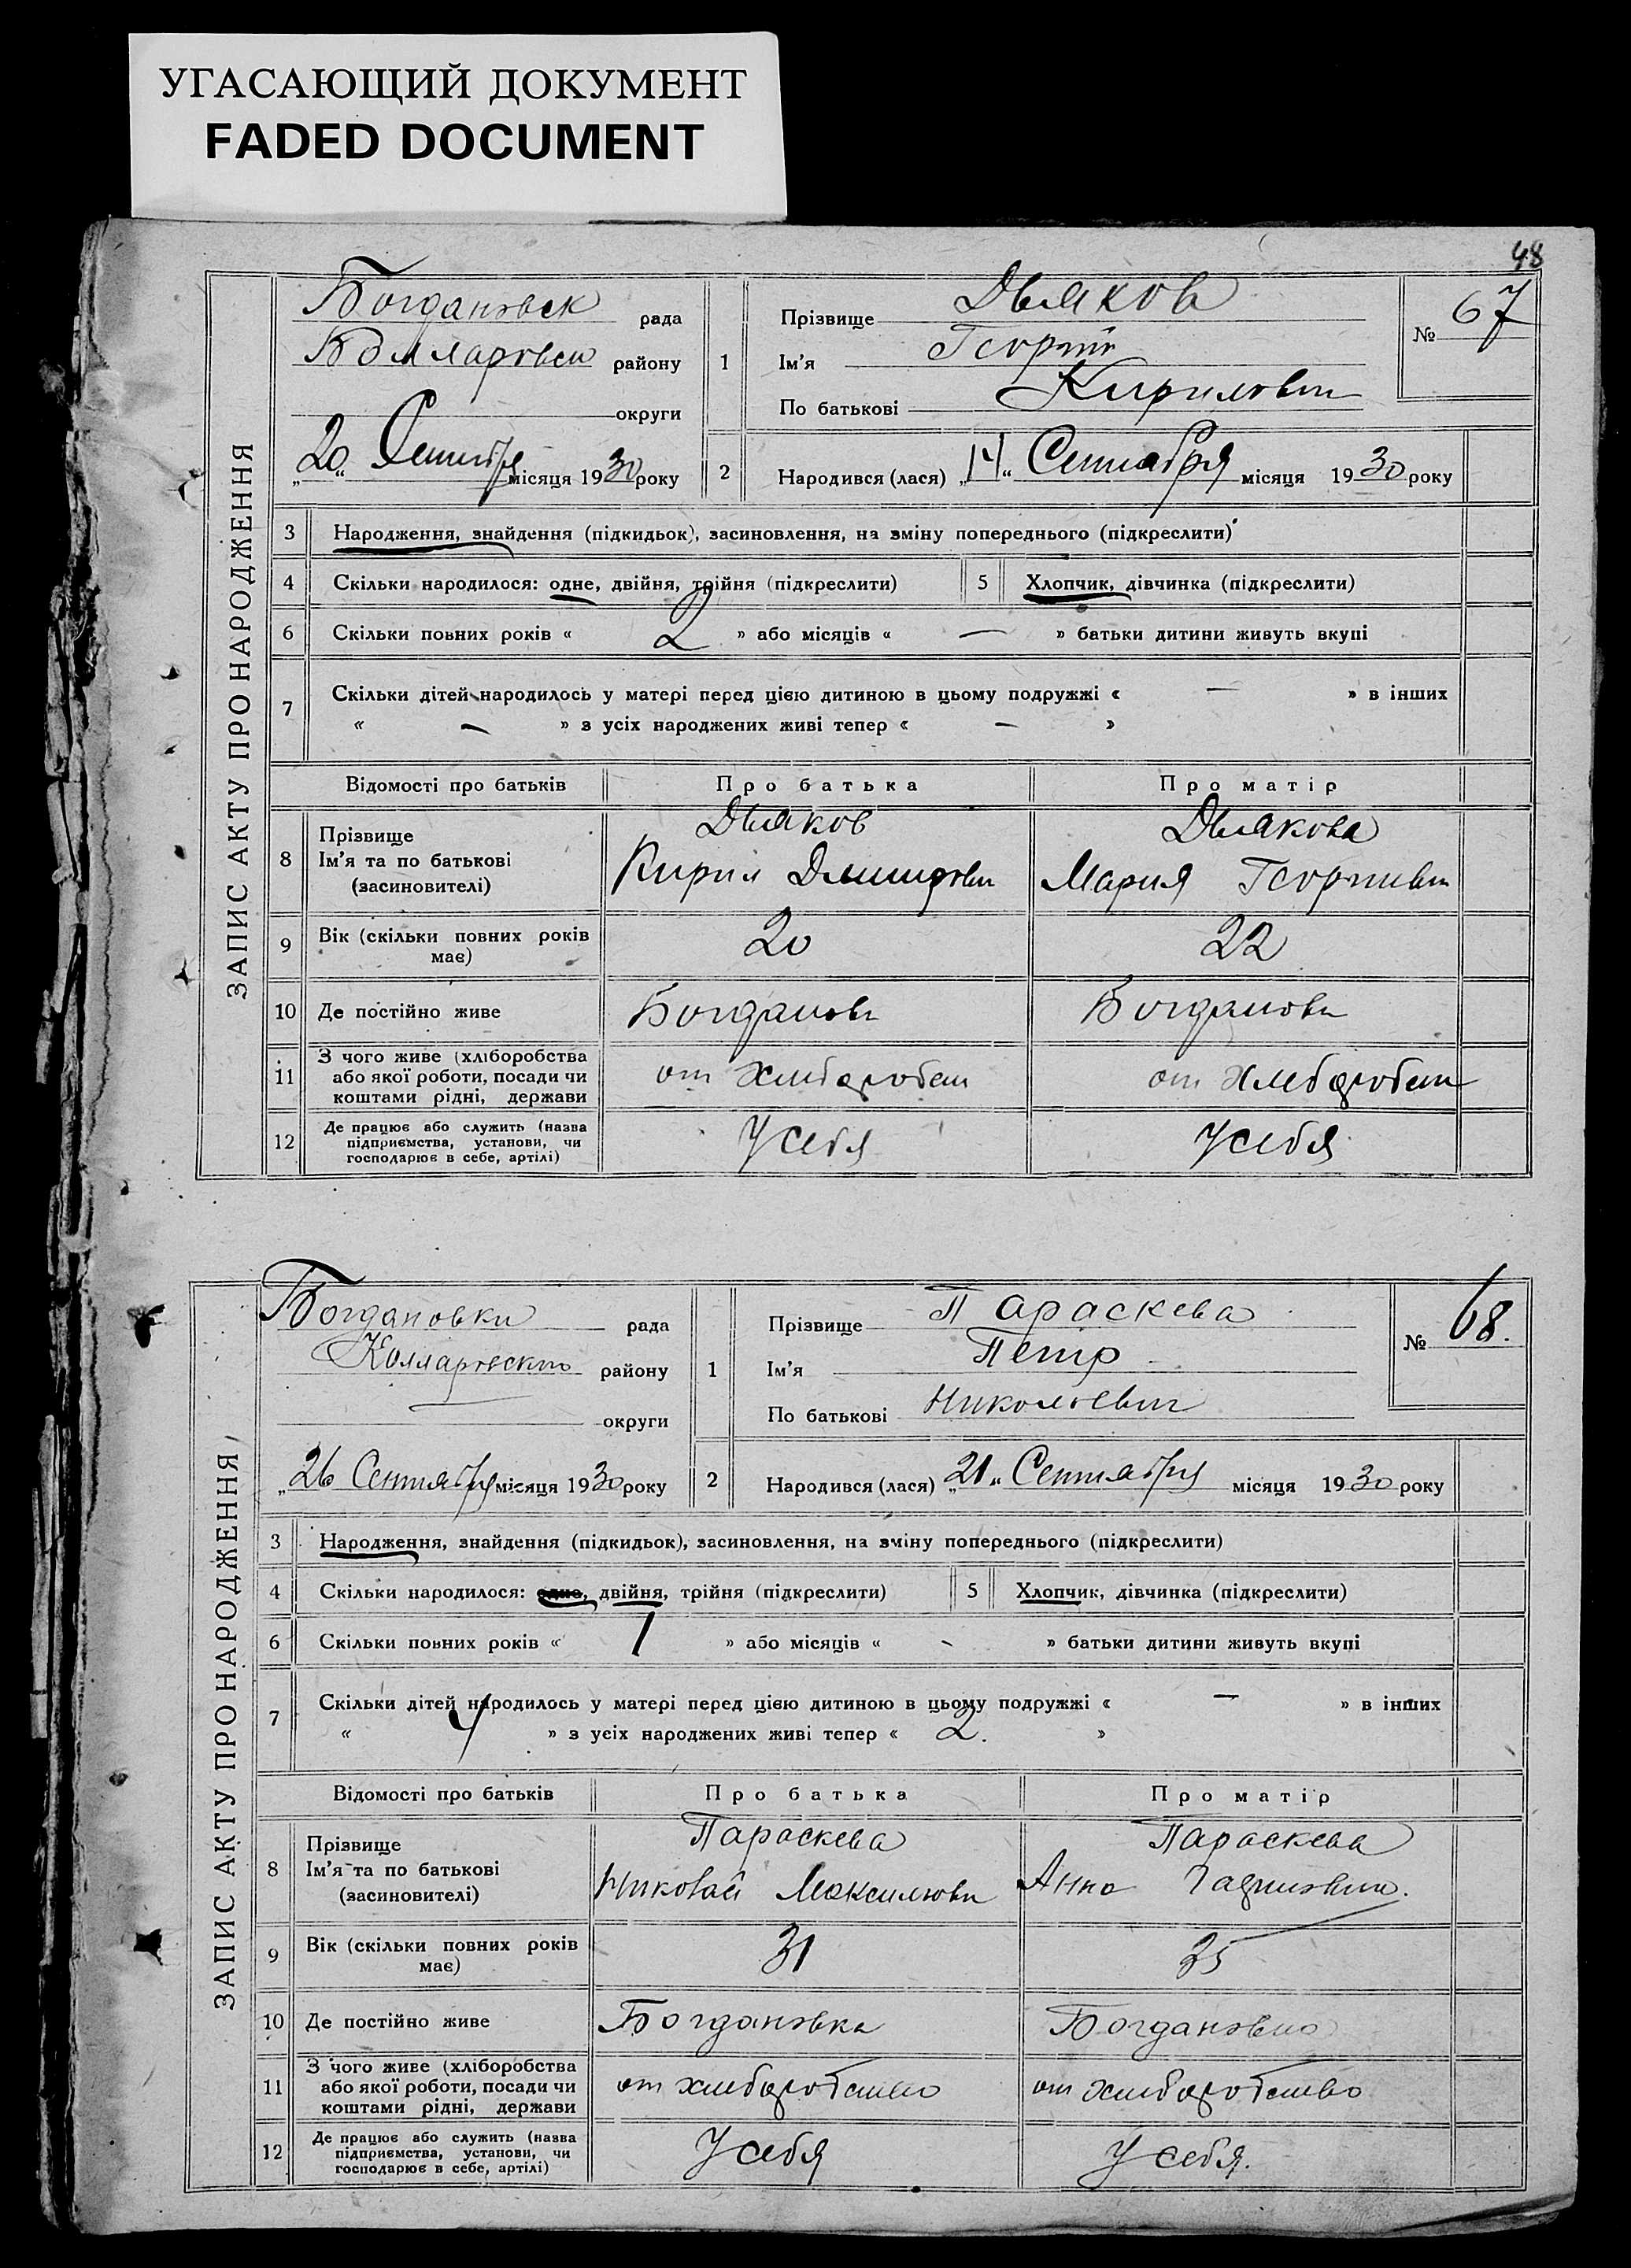 УГАСАЮЩИЙ ДОКУМЕНТ
FADED DOCUMENT
48
ЗАПИС АКТУ ПРО НАРОДЖЕННЯ
Богдановск рада
району
округи
„20“ Сентября місяця 1930 року
1
Прізвище Дьяков
Ім'я Георгий
По батькові Кирилович
№ 67
2
Народився (лася) „14“ Сентября місяця 1930 року
3 Народження, знайдення (підкидьок), засиновлення, на зміну попереднього (підкреслити)
4 Скільки народилося: одне, двійня, трійня (підкреслити)
5 Хлопчик, дівчинка (підкреслити)
6 Скільки повних років « 2 » або місяців « — » батьки дитини живуть вкупі
7 Скільки дітей народилось у матері перед цією дитиною в цьому подружжі « — » в інших
« — » з усіх народжених живі тепер « — »
Відомості про батьків Про батька Про матір
8 Прізвище
Ім'я та по батькові
(засиновителі)
Дьяков
Кирил
Дьякова
Мария
9 Вік (скільки повних років
має)
20 22
10 Де постійно живе
11 З чого живе (хліборобства
або якої роботи, посади чи
коштами рідні, держави
от от
12 Де працює або служить (назва
підприємства, установи, чи
господарює в себе, артілі)
У себя У себя
ЗАПИС АКТУ ПРО НАРОДЖЕННЯ
Богдановки рада
району
округи
„26 Сентября місяця 1930 року
1
Прізвище Параскева
Ім'я Петр
По батькові Николаевич
№ 68.
2
Народився (лася) „21“ Сентября місяця 1930 року
3 Народження, знайдення (підкидьок), засиновлення, на зміну попереднього (підкреслити)
4 Скільки народилося: одне, двійня, трійня (підкреслити)
5 Хлопчик, дівчинка (підкреслити)
6 Скільки повних років « 1 » або місяців « - » батьки дитини живуть вкупі
7 Скільки дітей народилось у матері перед цією дитиною в цьому подружжі « — » в інших
« 4 » з усіх народжених живі тепер « 2. »
Відомості про батьків Про батька Про матір
8 Прізвище
Ім'я та по батькові
(засиновителі)
Параскева
Николай
Параскева
Анна
9 Вік (скільки повних років
має)
31 35
10 Де постійно живе
Богдановка
11 З чого живе (хліборобства
або якої роботи, посади чи
коштами рідні, держави
от от
12 Де працює або служить (назва
підприємства, установи, чи
господарює в себе, артілі)
У себя У себя.